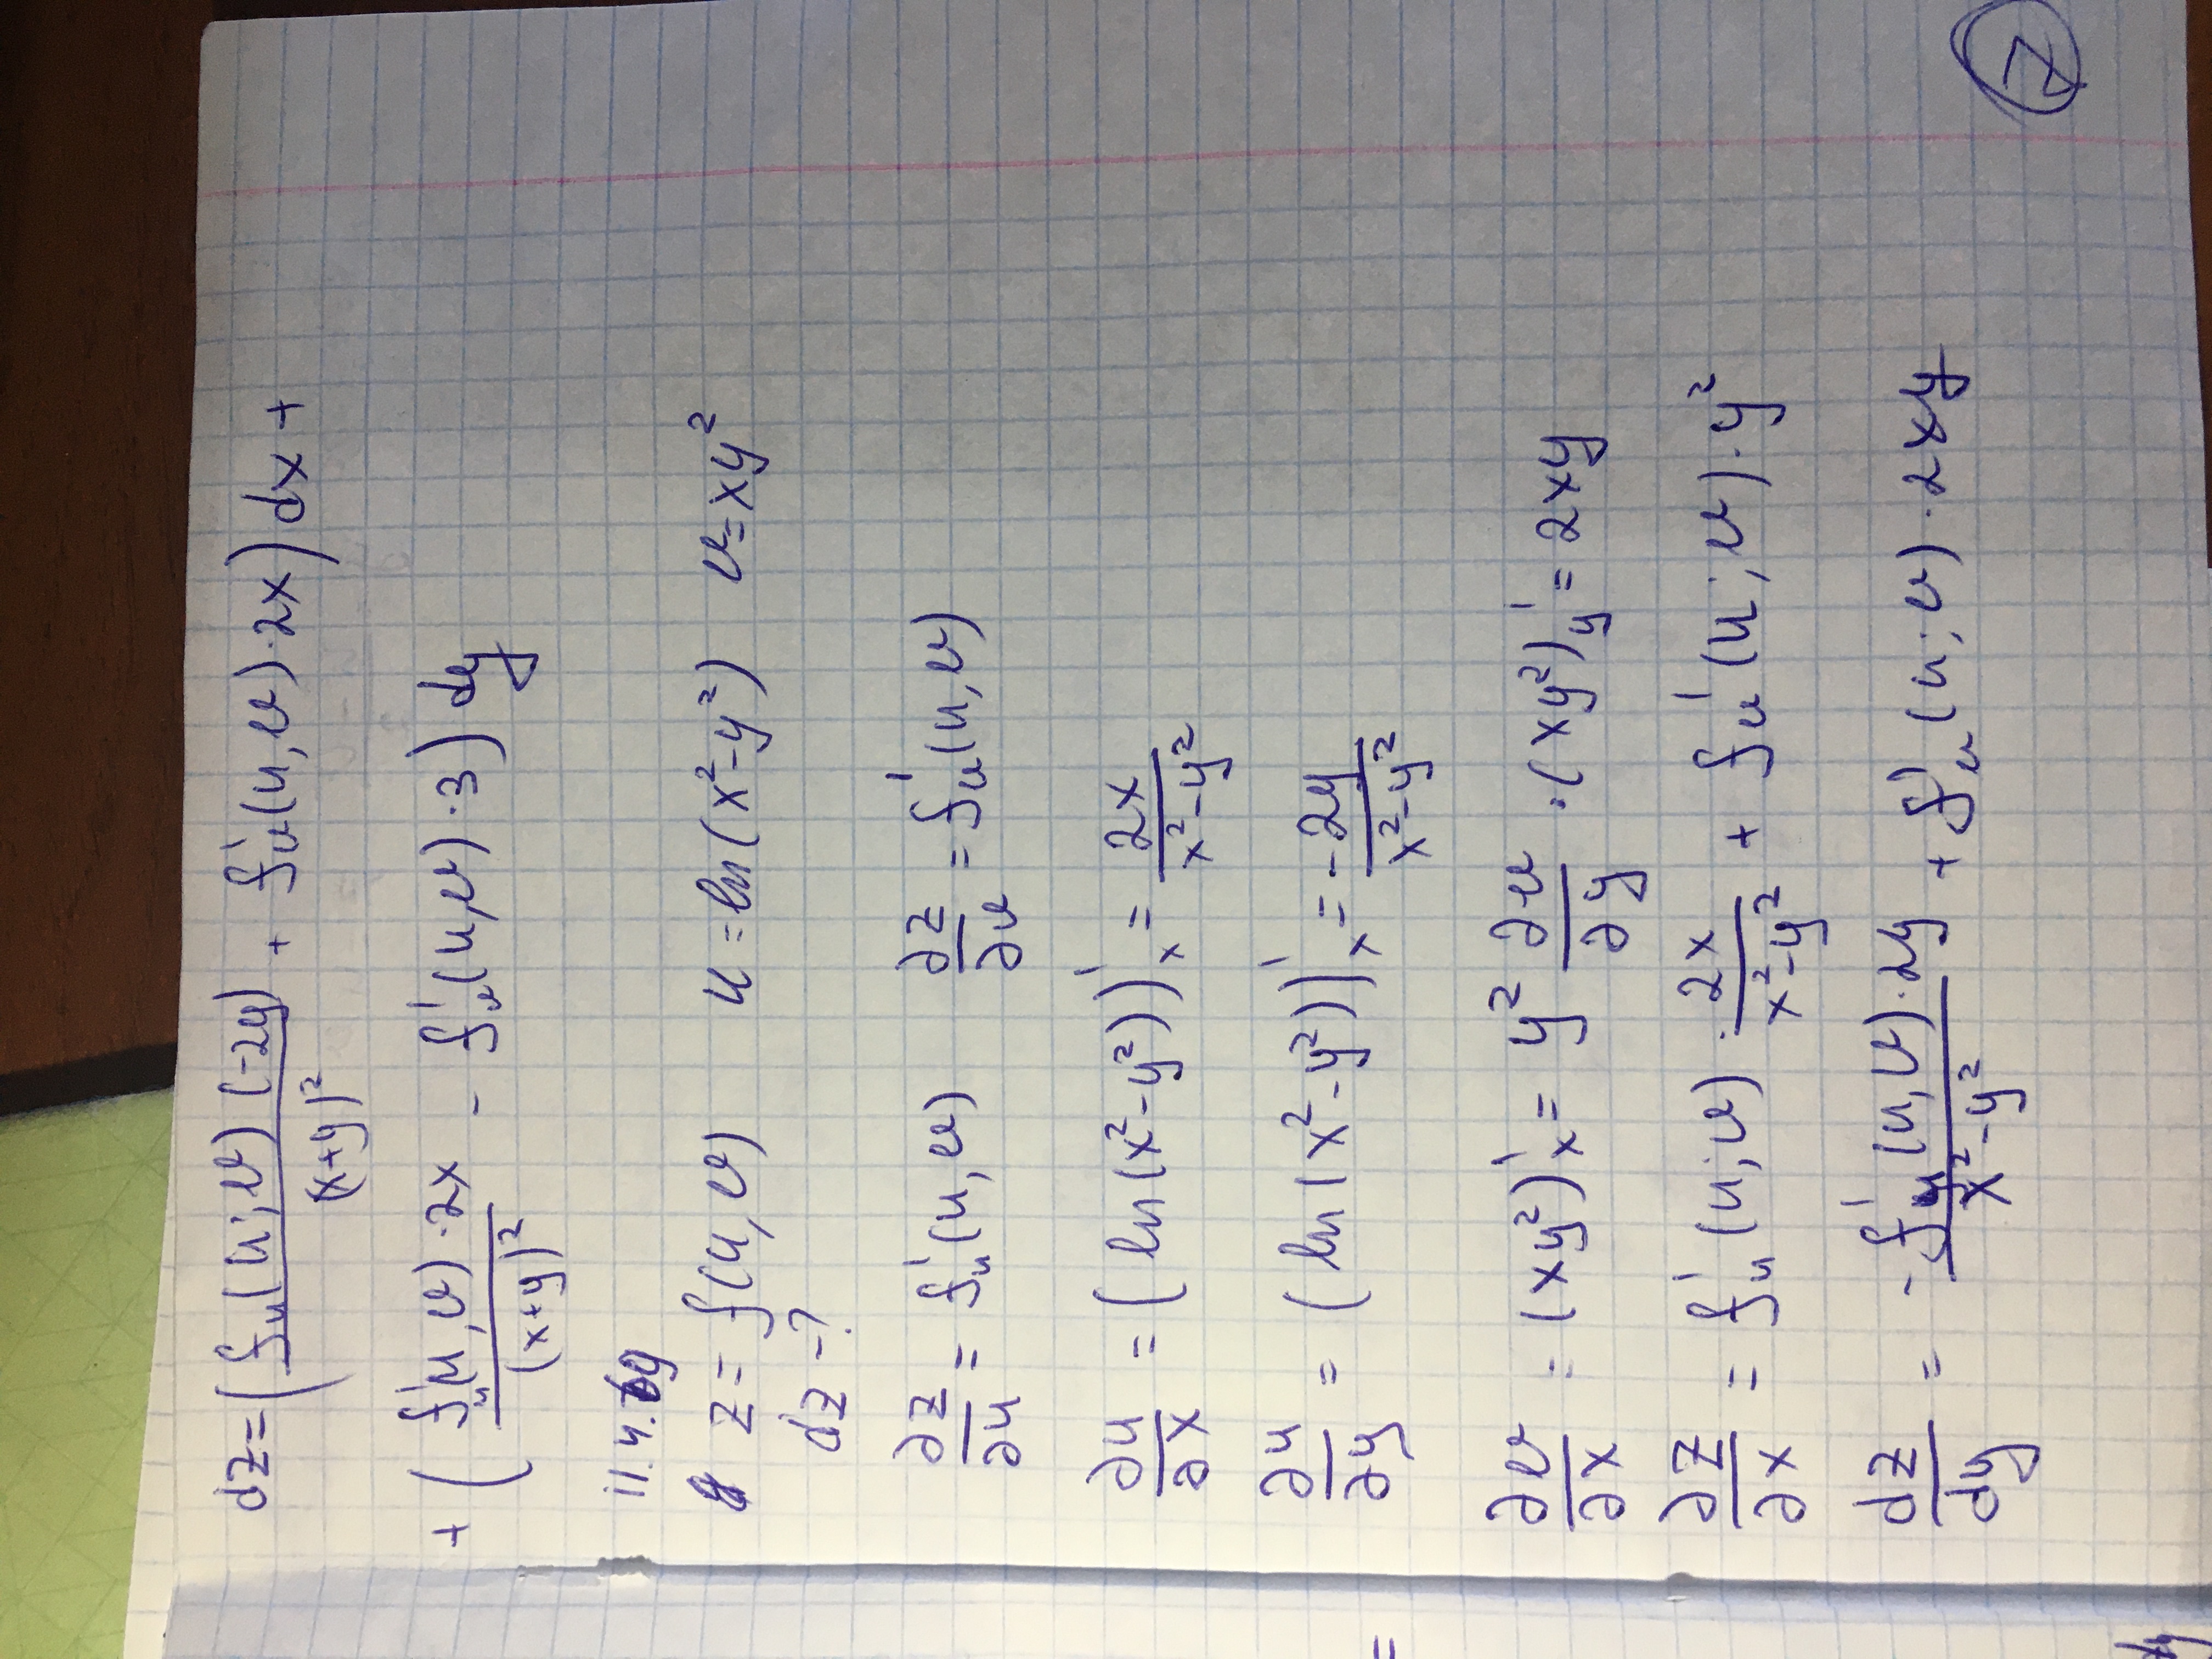 dz = ( f_u(u;v) (-2y) / (x+y)² + f'_v(u,v)·2x ) dx +
+ ( f'_u(u,v)·2x / (x+y)² - f'_v(u,v)·3 ) dy
11.4.g
z = f(u,v)  u = ln(x²-y²)  v = xy²
dz - ?
∂z/∂u = f'_u(u,v)  ∂z/∂v = f'_v(u,v)
∂u/∂x = (ln(x²-y²))'_x = 2x / x²-y²
∂u/∂y = (ln(x²-y²))'_x = -2y / x²-y²
∂v/∂x = (xy²)'_x = y²  ∂v/∂y · (xy²)'_y = 2xy
∂z/∂x = f'_u(u;v) · 2x / x²-y² + f'_v(u;v)·y²
dz/dy = -f'_u(u,v)·2y / x²-y² + f'_v(u;v)·2xy